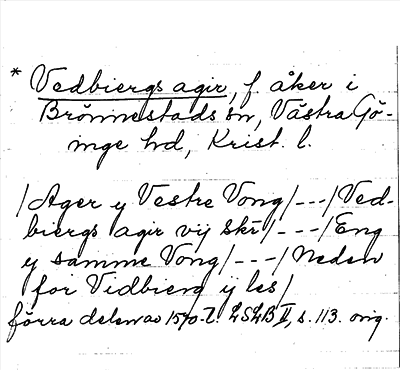 * Vedbiergs agir, f. åker i
Brönnestads sn, Västra Gö-
inge hd, Krist. l.
/Ager y Vestre Vong/---/Ved-
biergs agir vij skr/---/Eng
y samme Vong/---/Neden
for Vidbierg ij les/
förra delen av 1570-t. LSLB II, s. 113. orig.